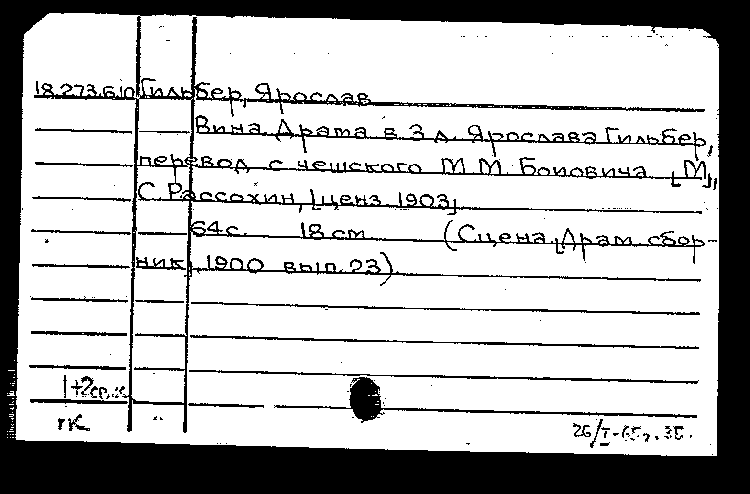 18.273.610 Гильбер, Ярослав
Вина. Драма в 3 д. Ярослава Гильбер,
перевод с чешского М. М. Боиовича. [М],
С. Рассохин, [ценз. 1903]
64 с. 18 см (Сцена. [Драм. сбор-
ник]. 1900 вып. 23).
1+2
26/I-65г.